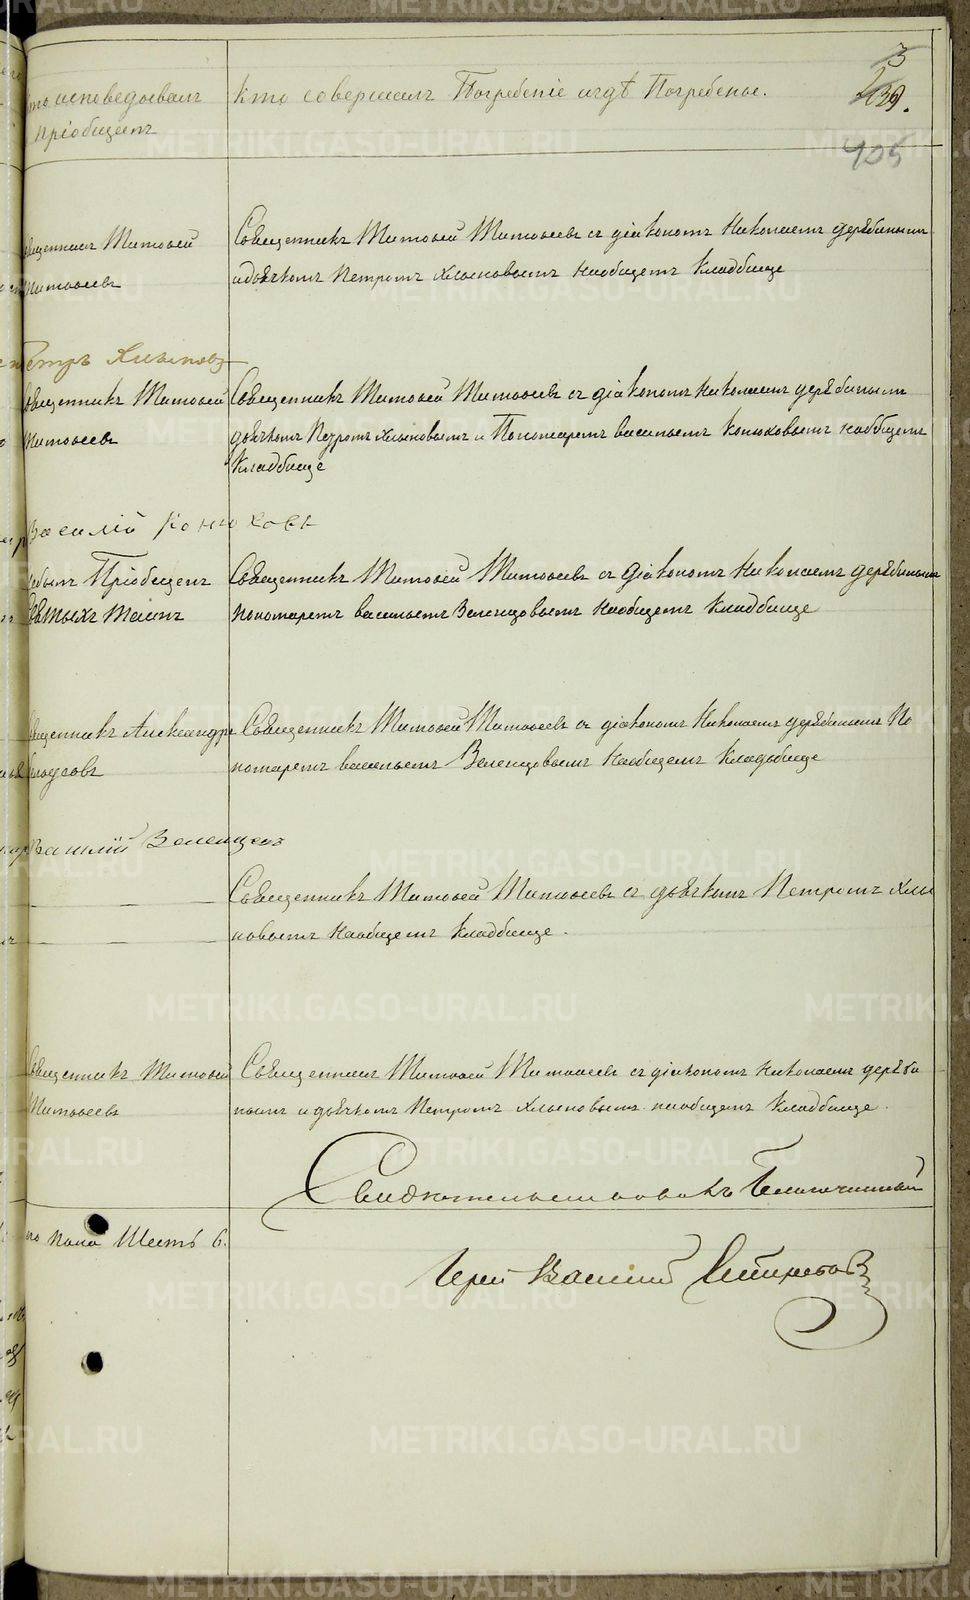 кто исповедовалъ
пріобщилъ
Кто совершалъ Погребеніе игдѣ Погребены.
3
405
Священникъ Матөей
Матөеевъ
Священникъ Матөей Матөеевъ съ діакономъ Николаемъ дерябинымъ
идьячкомъ Петромъ Хлыновымъ наобщемъ Кладбище
Петръ Хлыновъ
Священникъ Матөей
Матөеевъ
Священникъ Матөей Матөеевъ съ діакономъ Николаемъ дерябинымъ
дьячкомъ Петромъ Хлыновымъ и Пономаремъ васильемъ Конюховымъ наобщемъ
Кладбище
Василій Конюховъ
Пріобщенъ
Святыхъ таинъ
Священникъ Матөей Матөеевъ съ діакономъ Николаемъ дерябинымъ
пономаремъ васильемъ Зеленцовымъ наобщемъ Кладбище
Священникъ Александръ
Священникъ Матөей Матөеевъ съ діакономъ Николаемъ дерябинымъ По
номаремъ васильемъ Зеленцовымъ наобщемъ Кладбище
Василій Зеленцовъ
Священникъ Матөей Матөеевъ съ дьячкомъ Петромъ Хлы
новымъ наобщемъ Кладбище.
Священникъ Матөей
Матөеевъ
Священникъ Матөей Матөеевъ съ діакономъ Николаемъ деряби
нымъ и дьячкомъ Петромъ Хлыновымъ наобщемъ Кладбище.
Свидѣтельствовалъ Благочинный
пола Шесть 6.
Іерей Василій
METRIKI.GASO-URAL.RU